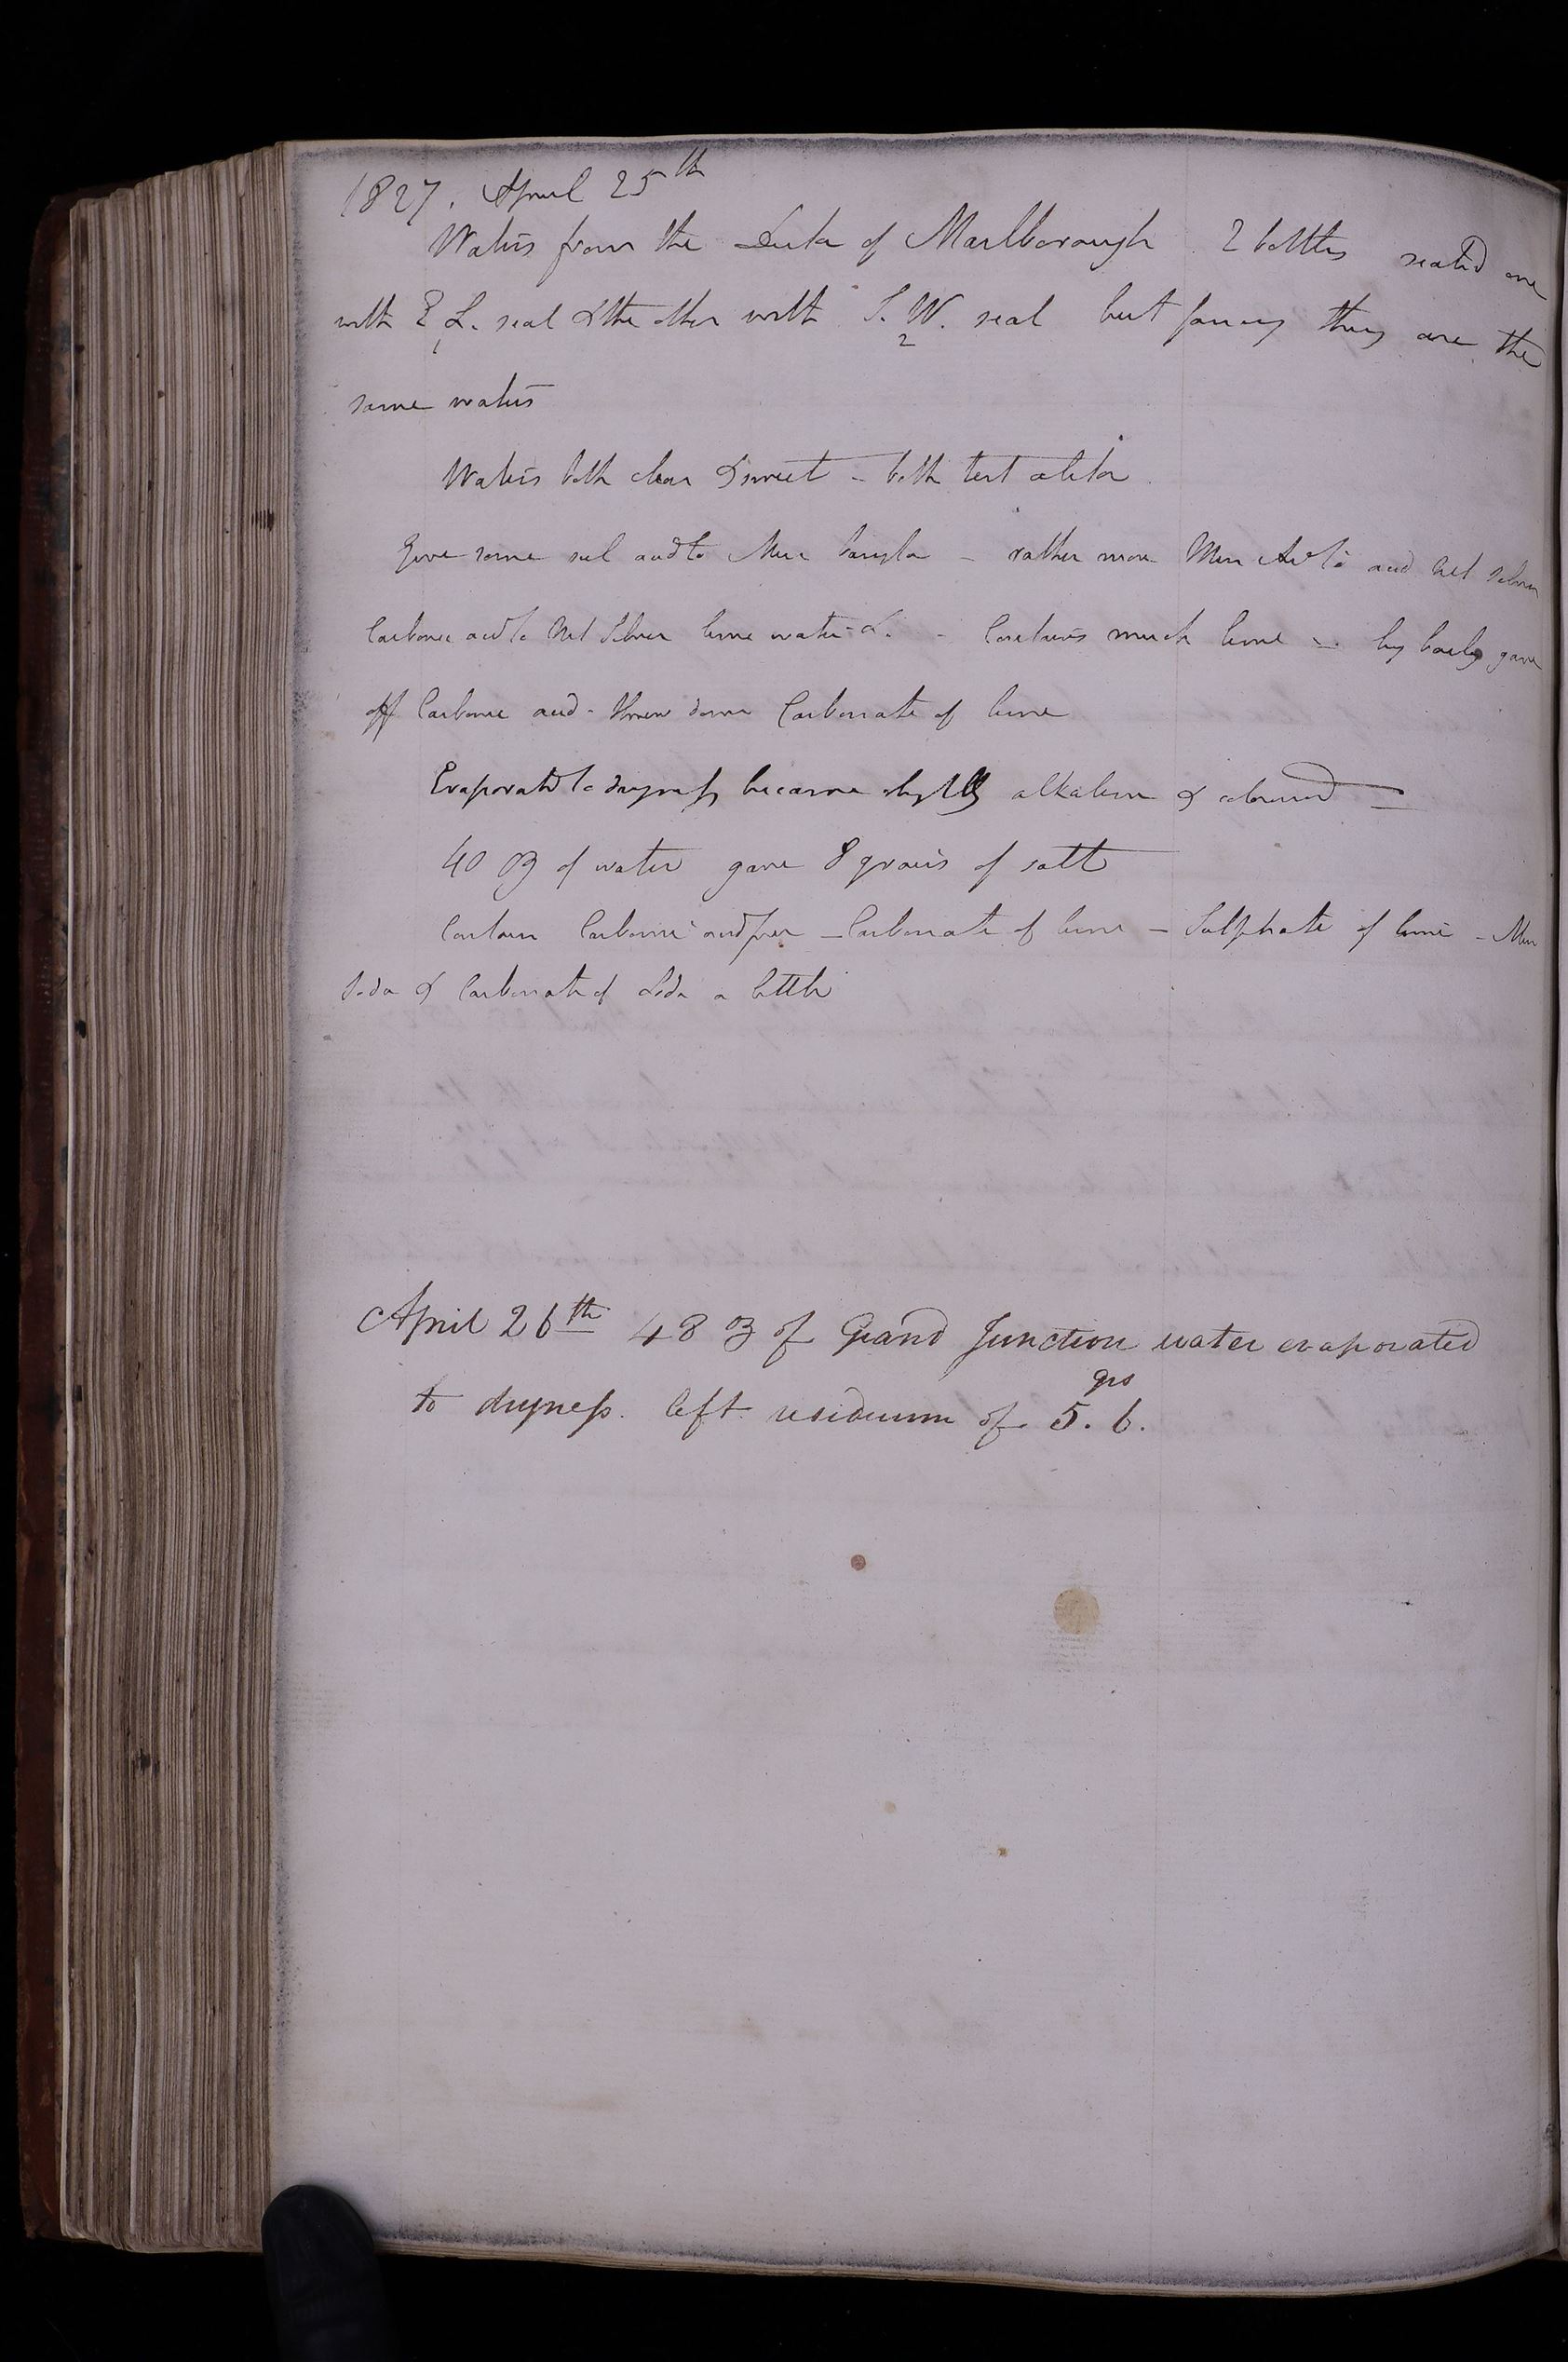 1827. April 25th
Waters from the Duke of Marlborough 2 bottles sealed one
with E L. seal & the other with S. W. seal but fancy they are the
1 2
same waters
Waters both clear & sweet - both test alike
Gave some sul acid to Mur baryta - rather more Mur Acid to and nit silver
Carbonic acid to Nit Silver lime water &. - Contains much lime - by boilg gave
off Carbonic acid - threw down Carbonate of lime
Evaporated to dryness became slightly alkaline & coloured -
40 oz of water gave 8 grains of salt
Contain Carbonic acid free - Carbonate of lime - Sulphate of lime - Mur
Soda & Carbonate of Soda a little
April 26th 48 oz of Grand Junction water evaporated
to dryness. left residuum of 5.6.
grs